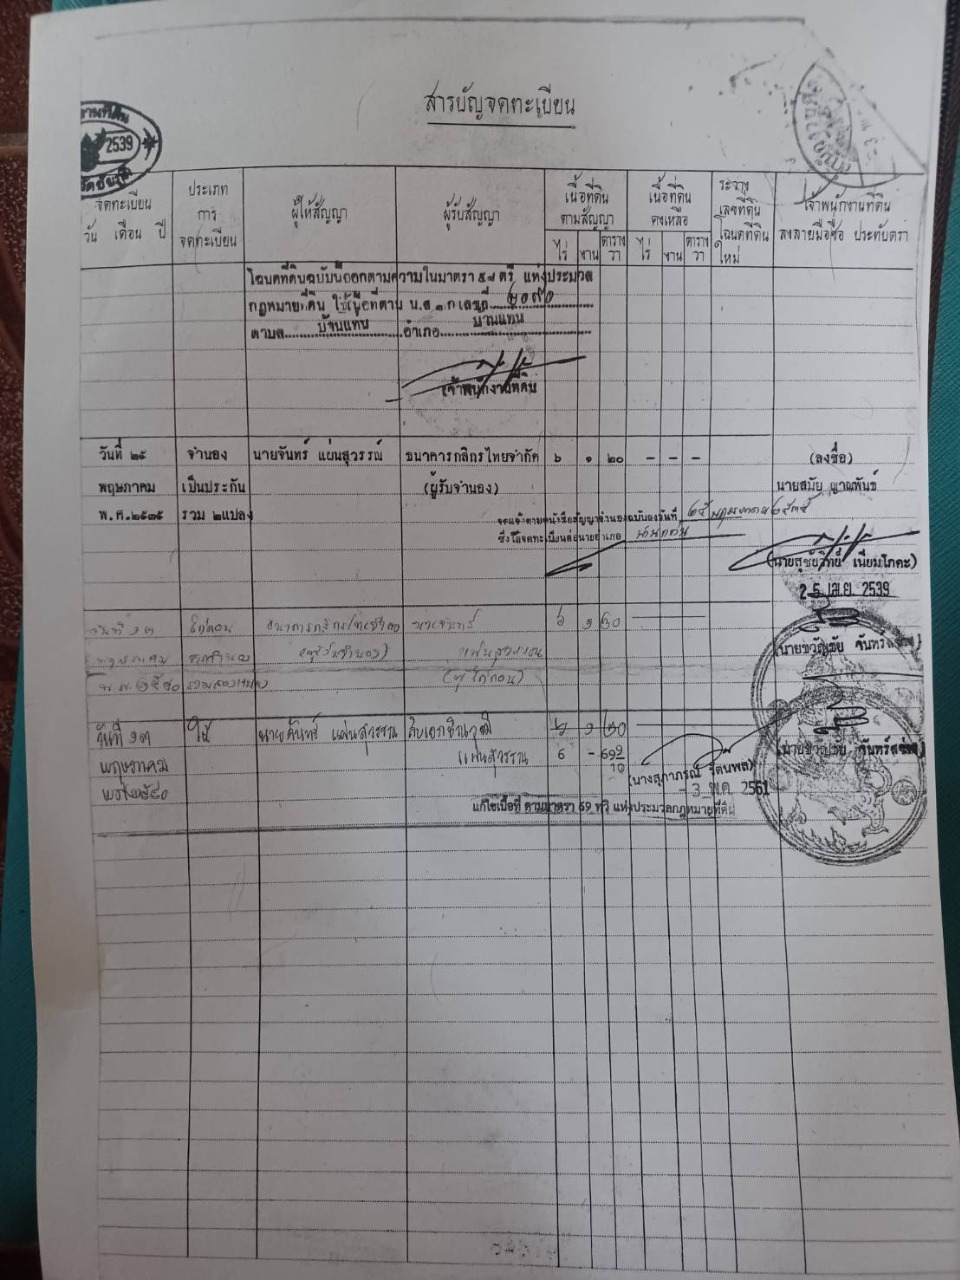 สารบัญจดทะเบียน
2539
จดทะเบียน
วัน เดือน ปี
ประเภท
การ
จดทะเบียน
ผู้ให้สัญญา
ผู้รับสัญญา
เนื้อที่ดิน
ตามสัญญา
ไร่ งาน ตาราง
วา
เนื้อที่ดิน
คงเหลือ
ไร่ งาน ตาราง
วา
ระวาง
เลขที่ดิน
โฉนดที่ดิน
ใหม่
เจ้าพนักงานที่ดิน
ลงลายมือชื่อ ประทับตรา
โฉนดที่ดินฉบับนี้ออกตามความในมาตรา ๕๘ ตรี แห่งประมวล
กฎหมายที่ดิน ใช้เนื้อที่ตาม น.ส.๓ก เลขที่ ๒๐๙๐
ตำบล บ้านแทน อำเภอ บ้านแทน
(เจ้าพนักงานที่ดิน
วันที่ ๒๕ จำนอง นายจันทร์ แผ่นสุวรรณ์ ธนาคารกสิกรไทยจำกัด ๖ ๑ ๒๐ – – – (ลงชื่อ)
พฤษภาคม เป็นประกัน (ผู้รับจำนอง) นายสมัย
พ.ศ.๒๕๓๕ รวม ๒แปลง
จดแจ้งตามหนังสือสัญญาจำนองฉบับลงวันที่ ๒๕ พฤษภาคม ๒๕๓๕
ซึ่งได้จดทะเบียนต่อนายอำเภอ
(นายสุชัยวิทย์ เนียมโภคะ)
2 5 เม.ย. 2539
วันที่ ๑๓ ไถ่ถอน ธนาคารกสิกรไทยจำกัด นายจันทร์ ๖ ๑ ๒๐
พฤษภาคม จากจำนอง (ผู้รับจำนอง) แผ่นสุวรรณ
พ.ศ. ๒๕๔๐ รวมสองแปลง (ผู้ไถ่ถอน)
(นายขวัญชัย จันทร์
วันที่ ๑๓ ให้ นายจันทร์ แผ่นสุวรรณ สิบเอกชินวุฒิ ๖ ๑ ๒๐
พฤษภาคม แผ่นสุวรรณ 6 – 69 9/10
พ.ศ.๒๕๔๐
(นางสุภาภรณ์ รัตนพล)
(นายขวัญชัย จันทร์
- 3 พ.ค. 2561
แก้ไขเนื้อที่ ตามมาตรา 69 ทวิ แห่งประมวลกฎหมายที่ดิน